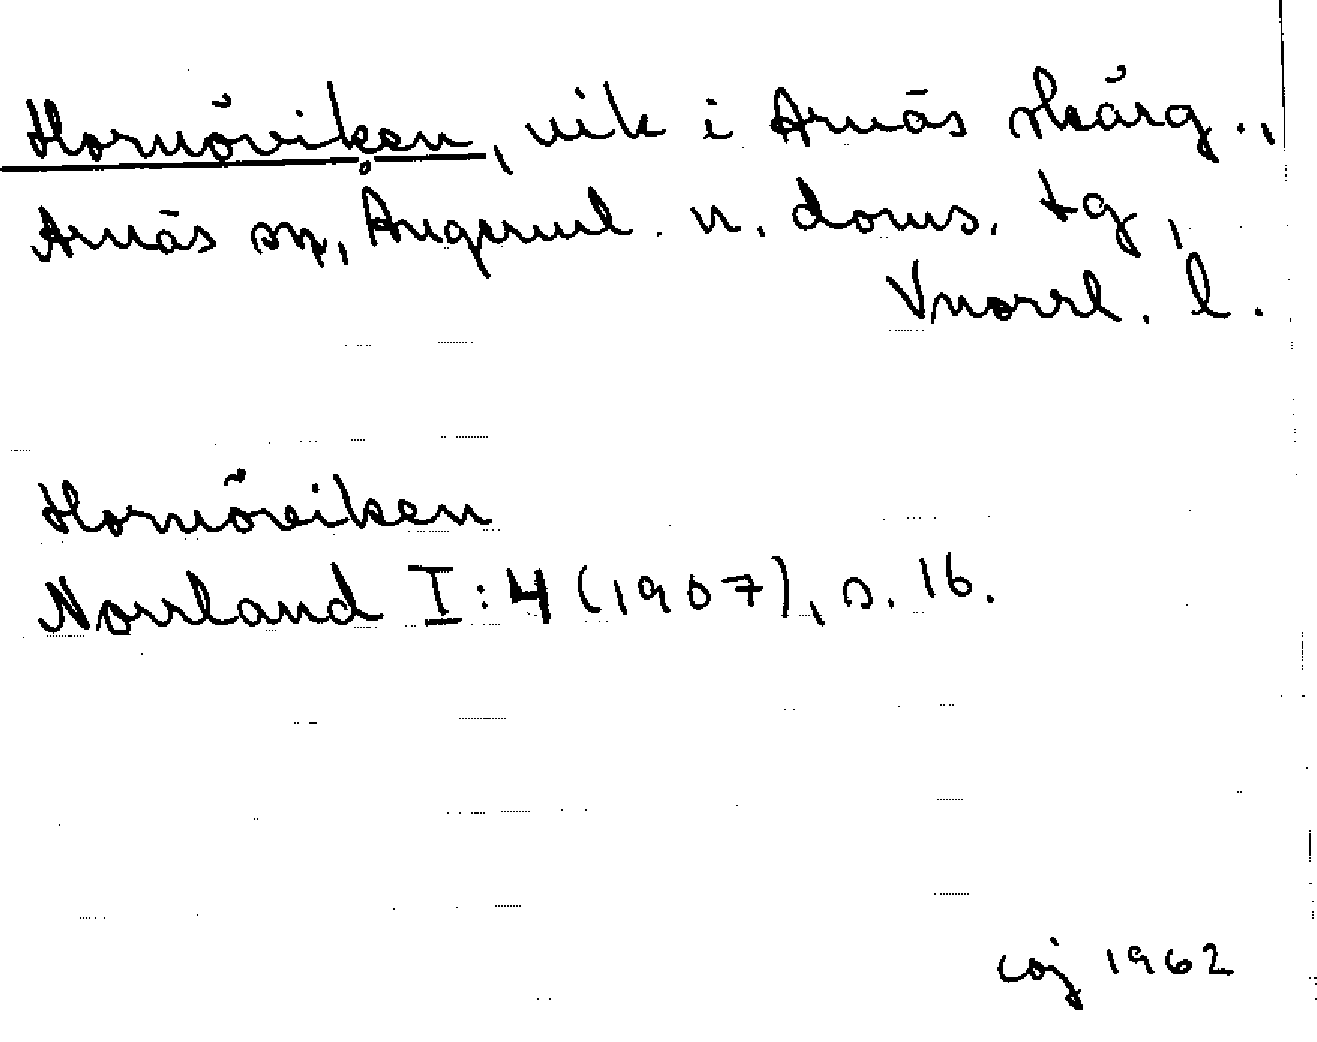 Hornöviken, vik i Arnäs skärg.,
Arnäs sn, Ångerml. n. doms. tg,
Vnorrl. l.
Hornöviken
Norrland I:4 (1907), s. 16.
coj 1962